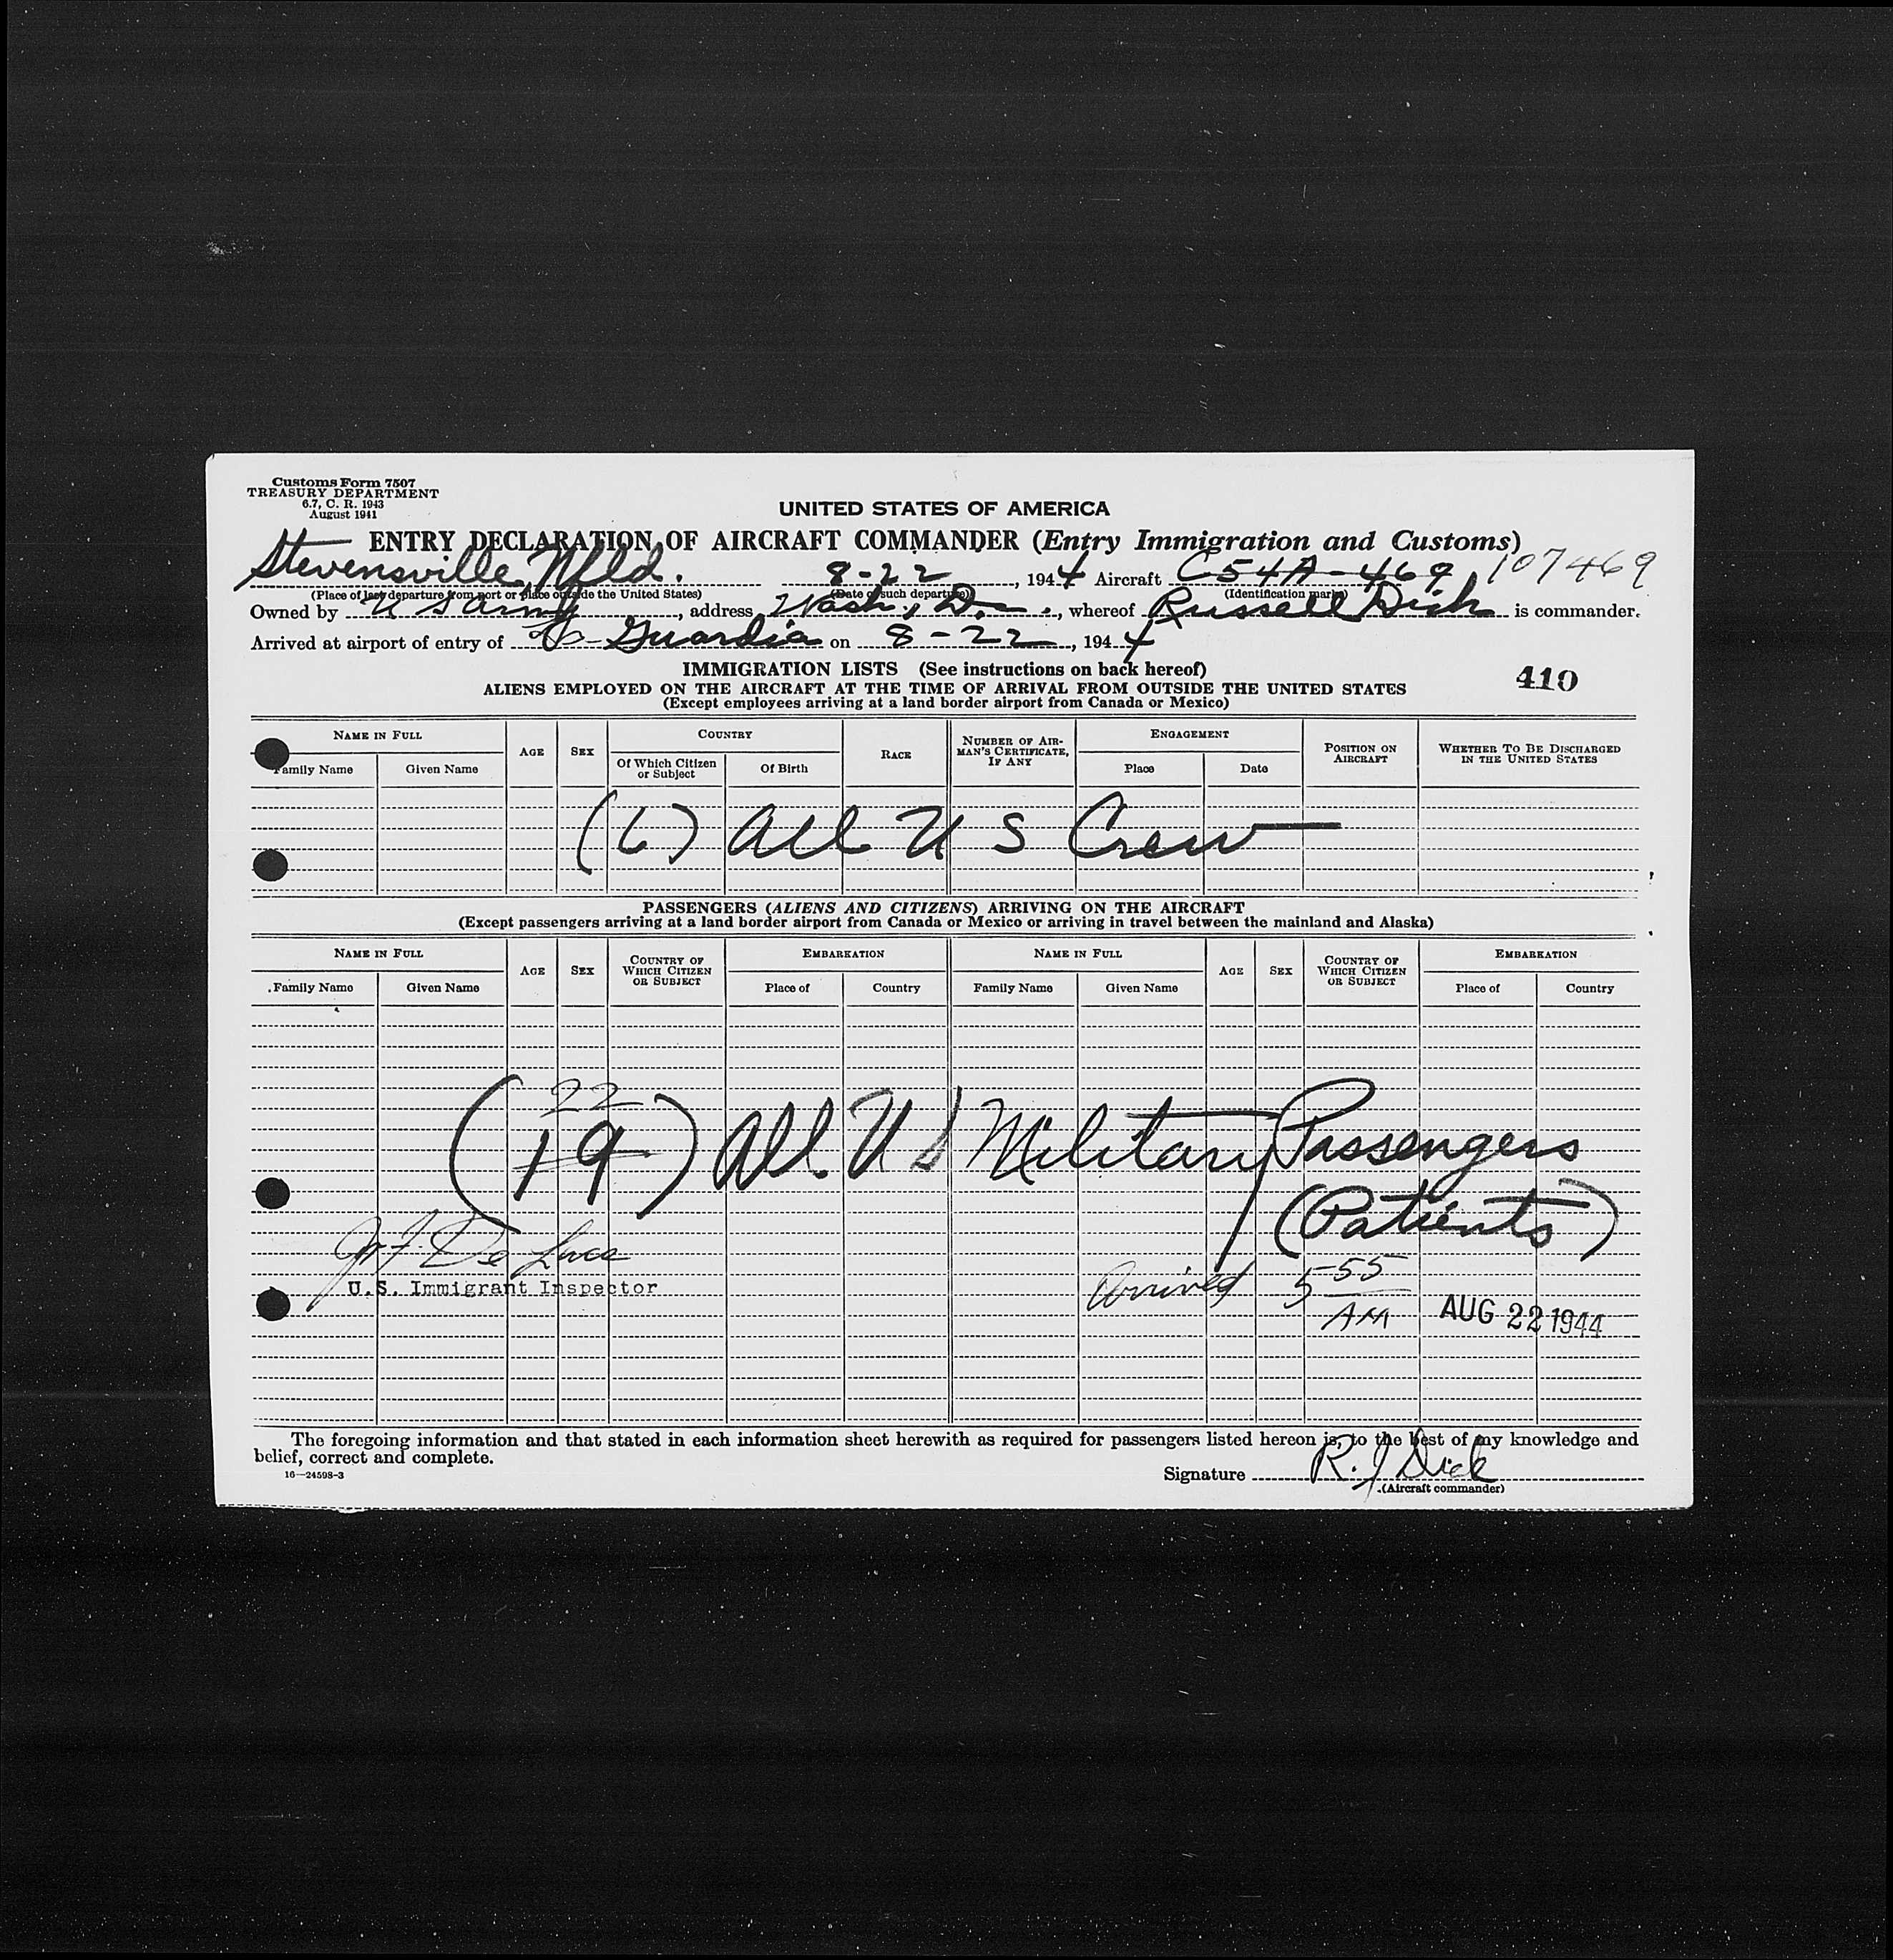 Customs Form 7507
TREASURY DEPARTMENT
6.7, C. R. 1943
August 1941
UNITED STATES OF AMERICA
ENTRY DECLARATION OF AIRCRAFT COMMANDER (Entry Immigration and Customs)
Stevensville, Nfld. 8-22, 1944 Aircraft C54A-469 107469
(Place of last departure from port or place outside the United States) (Date of such departure) (Identification marks)
Owned by U S Army, address Wash., D., whereof Russell Dick is commander.
Arrived at airport of entry of La Guardia on 8-22, 1944
IMMIGRATION LISTS (See instructions on back hereof)
410
ALIENS EMPLOYED ON THE AIRCRAFT AT THE TIME OF ARRIVAL FROM OUTSIDE THE UNITED STATES
(Except employees arriving at a land border airport from Canada or Mexico)
NAME IN FULL AGE SEX COUNTRY RACE NUMBER OF AIRMAN'S CERTIFICATE, IF ANY ENGAGEMENT POSITION ON AIRCRAFT WHETHER TO BE DISCHARGED IN THE UNITED STATES
Family Name Given Name Of Which Citizen or Subject Of Birth Place Date
(6) All U S Crew
PASSENGERS (ALIENS AND CITIZENS) ARRIVING ON THE AIRCRAFT
(Except passengers arriving at a land border airport from Canada or Mexico or arriving in travel between the mainland and Alaska)
NAME IN FULL AGE SEX COUNTRY OF WHICH CITIZEN OR SUBJECT EMBARKATION NAME IN FULL AGE SEX COUNTRY OF WHICH CITIZEN OR SUBJECT EMBARKATION
Family Name Given Name Place of Country Family Name Given Name Place of Country
22
(19) All U S Military Passengers
(Patients)
J. F. De Luca
U.S. Immigrant Inspector
Arrived 5 55
AM AUG 22 1944
The foregoing information and that stated in each information sheet herewith as required for passengers listed hereon is, to the best of my knowledge and
belief, correct and complete.
16—24598-3
Signature R. J Dick
(Aircraft commander)